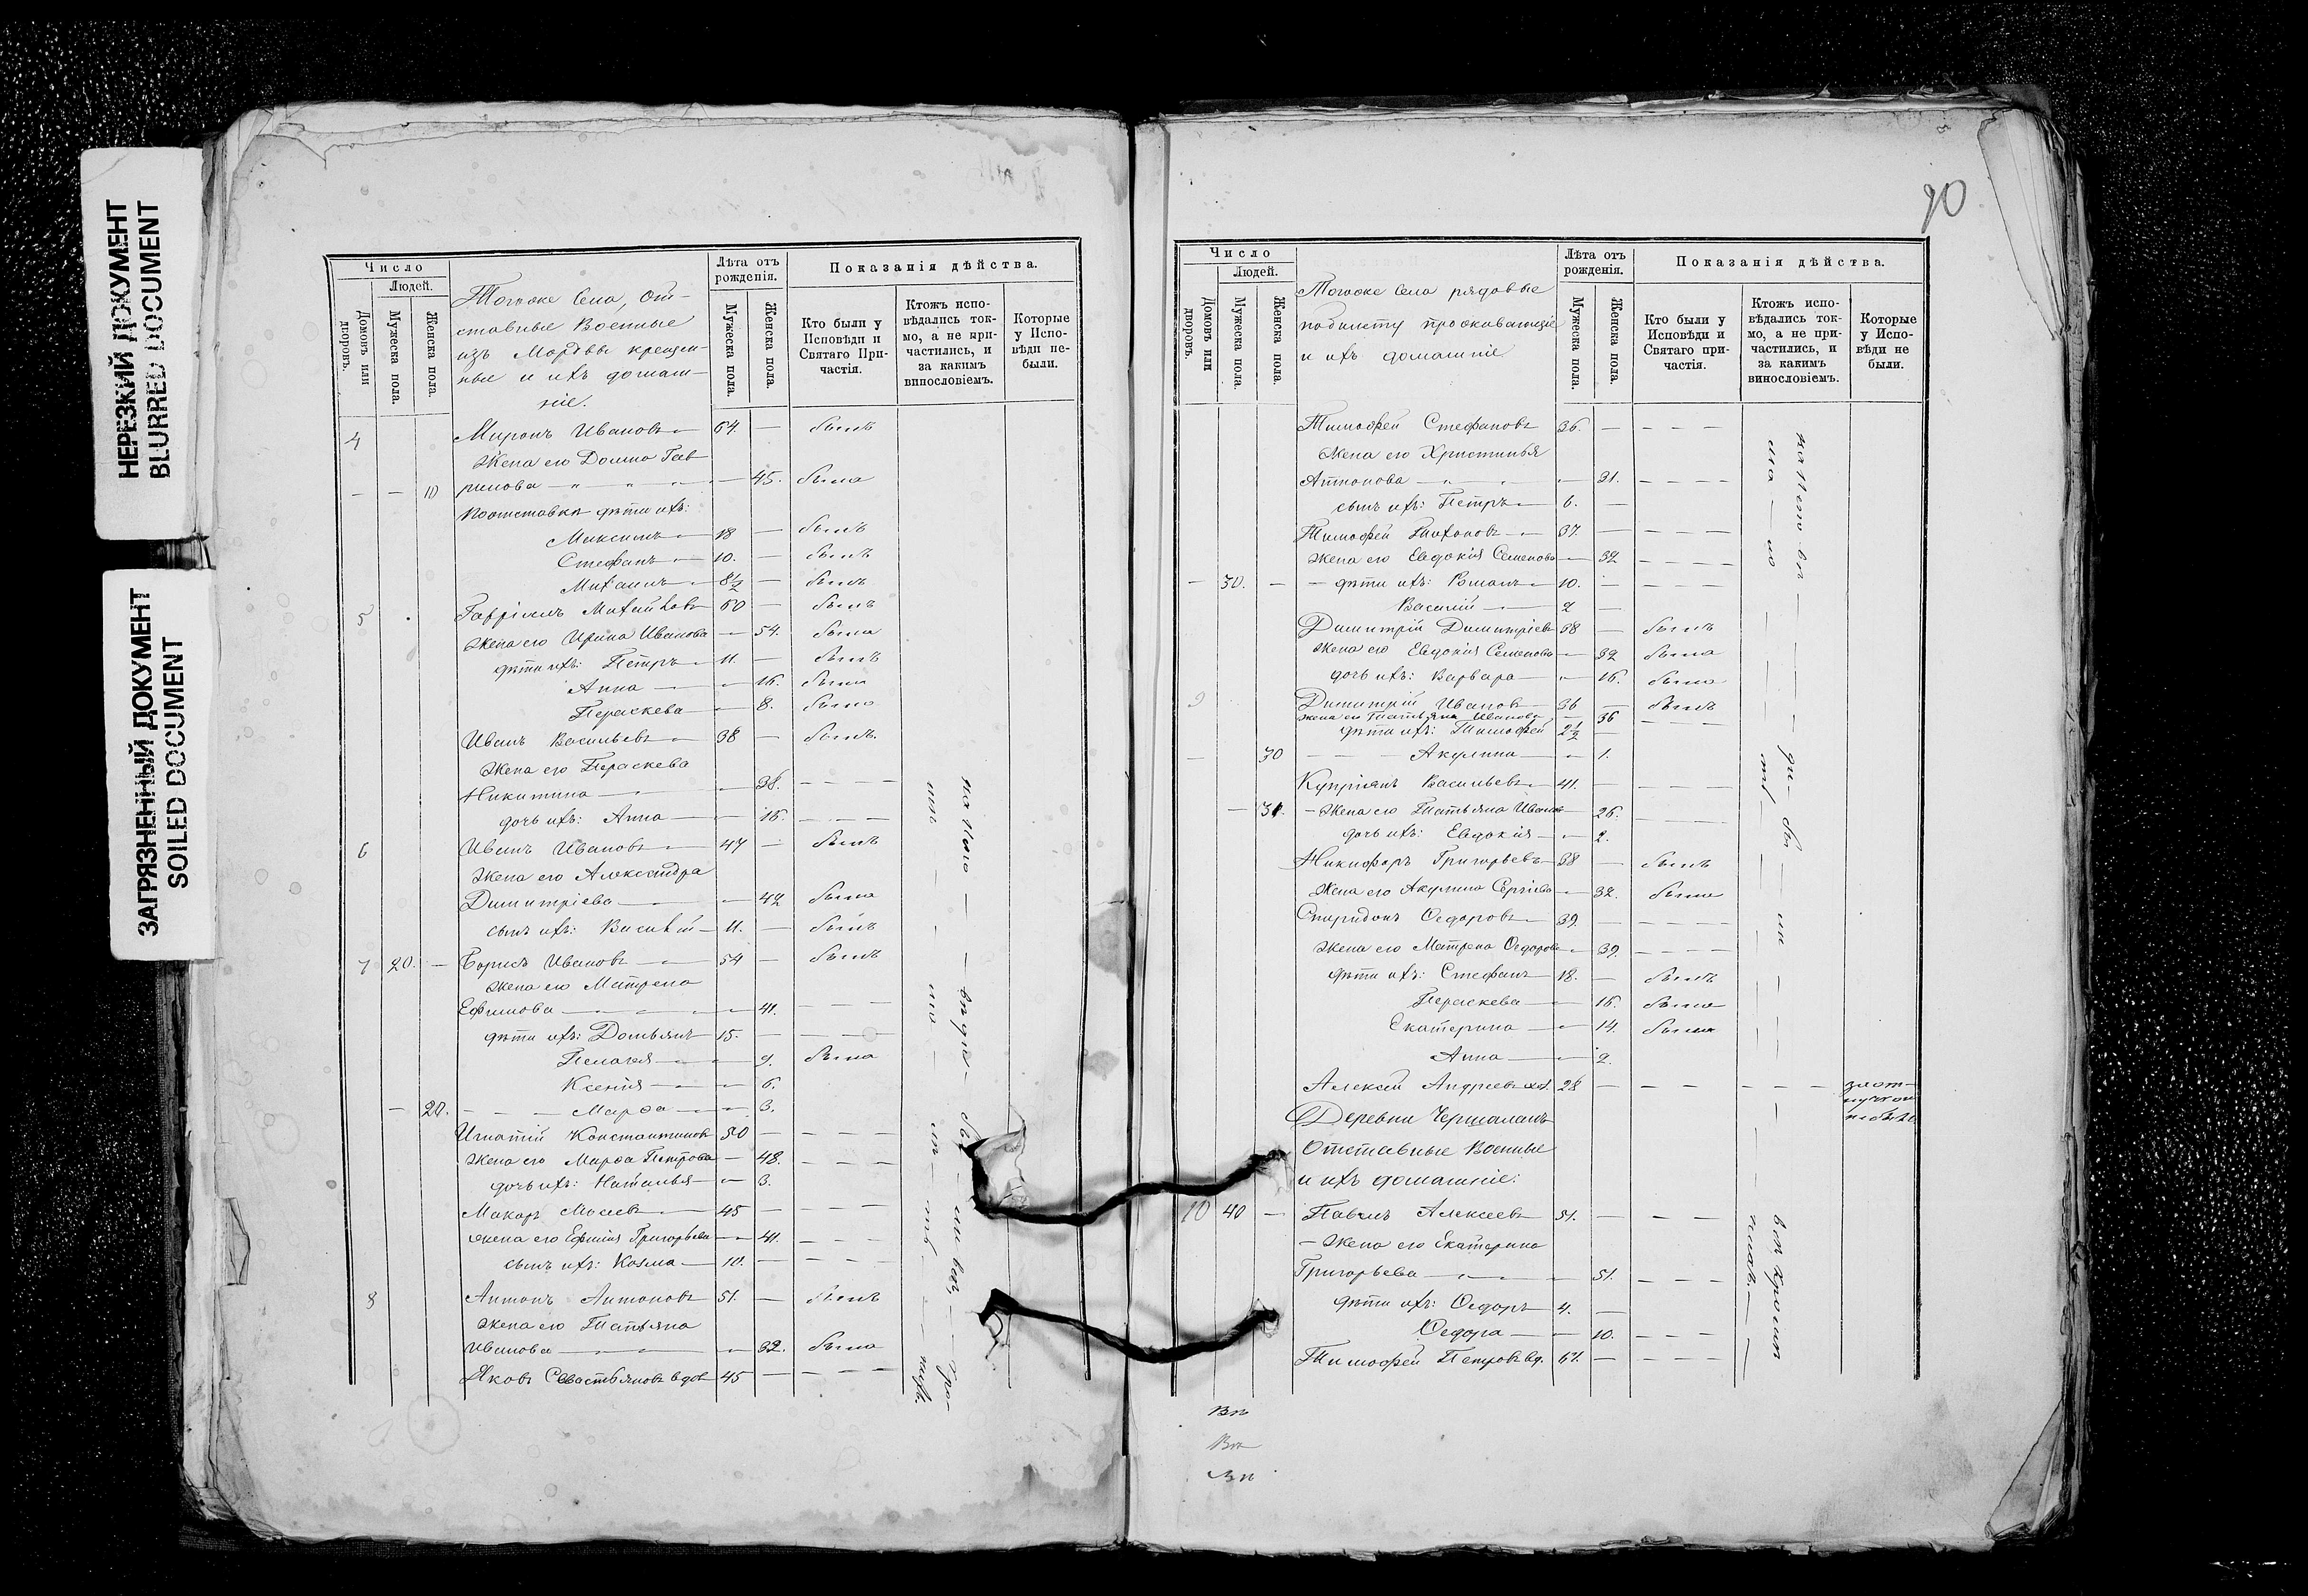 НЕРЕЗКИЙ ДОКУМЕНТ
BLURRED DOCUMENT
ЗАГРЯЗНЕННЫЙ ДОКУМЕНТ
SOILED DOCUMENT
Число
Людей.
Домовъ или дворовъ.
Мужеска пола.
Женска пола.
Тогоже Села, От-
ставные Военные
изъ Мордвы крещен-
ные и ихъ домаш-
ніе.
Лѣта отъ рожденія.
Мужеска пола.
Женска пола.
Показанія дѣйства.
Кто были у Исповѣди и Святаго При-частія.
Ктожъ испо-вѣдались ток-мо, а не при-частились, и за какимъ винословіемъ.
Которые у Испо-вѣди не-были.
4 Миронъ Ивановъ 64. — былъ
Жена его Домна Гав
— — 10 рилова — 45. была
дѣти ихъ:
Максимъ 18 — былъ
Стефанъ 10. — былъ
Михаилъ 8½ — былъ
5 Гавріилъ Михайловъ 60 — былъ
Жена его Ирина Иванова — 54. была
дѣти ихъ: Петръ 11. — былъ
Анна — 16. была
Параскева — 8. была
Иванъ Васильевъ 38 — былъ
Жена его Параскева
Никитина — 38. — — —
дочь ихъ: Анна — 16. — — —
6 Иванъ Ивановъ 47 — былъ
Жена его Александра
Димитріева — 42 была
сынъ ихъ: Василій 11. — былъ
7 20. — Борисъ Ивановъ 54 — былъ
Жена его Матрена
Ефимова — 41. — — —
дѣти ихъ: Домьянъ 15. — — — —
Пелагея — 9. была
Ксенія — 6.
— 20. — — — Марѳа — 3.
Игнатій Константиновъ 50 — — — —
Жена его Марѳа Петрова — 48. — — —
дочь ихъ: Наталья — 3.
Макаръ Моисеевъ 45 — — — —
жена его Ефимія Григорьева — 41. — — —
сынъ ихъ: Козма 10. — — — —
8 Антонъ Антоновъ 51. — былъ
Жена его Татьяна
Иванова — 32. была
Яковъ Севастьяновъ вдов 45 — — — —
90
Число
Людей.
Домовъ или дворовъ.
Мужеска пола.
Женска пола.
Тогоже Села рядовые
побилету проживающіе
и ихъ домашніе
Лѣта отъ рожденія.
Мужеска пола.
Женска пола.
Показанія дѣйства.
Кто были у Исповѣди и Святаго при-частія.
Ктожъ испо-вѣдались ток-мо, а не при-частились, и за какимъ винословіемъ.
Которые у Испо-вѣди не были.
Тимоѳей Стефановъ 36. — — — —
Жена его Христинья
Антонова — 31. — — — —
сынъ ихъ: Петръ 6. —
Тимоѳей Тихоновъ 37. — — — —
Жена его Евдокія Семенова — 32 — — — —
— 30. — — дѣти ихъ: Романъ 10. — — — —
Василій 2 —
Димитрій Димитріевъ 38 — былъ
Жена его Евдокія Семенова — 32 была
дочь ихъ: Варвара — 16. была
9 Димитрій Ивановъ 36 — былъ
жена его Татьяна Иванова — 36 — — —
дѣти ихъ: Тимоѳей 2½ —
— 30 — — Акулина — 1.
Купріянъ Васильевъ 41. — — — —
— 31. — Жена его Татьяна Иванов — 26. — — —
дочь ихъ: Евдокія — 2.
Никифоръ Григорьевъ 38 — былъ
Жена его Акулина Сергіева — 32. была
Спиридонъ Ѳедоровъ 39. — — — —
Жена его Матрена Ѳедорова — 39. — — — —
дѣти ихъ: Стефанъ 18. — былъ
Параскева — 16. была
Екатерина — 14. была
Анна — 2.
Алексѣй Андреевъ хол. 28 — — — — — — — заот-
Деревни
Отставные Военные
и ихъ домашніе:
10 40 — Павелъ Алексѣевъ 51. — — — —
— Жена его Екатерина
Григорьева — 51. — — —
дѣти ихъ: Ѳедоръ 4. —
Ѳедора — 10. — — —
Тимоѳей Петровъ вд. 61. — — — —